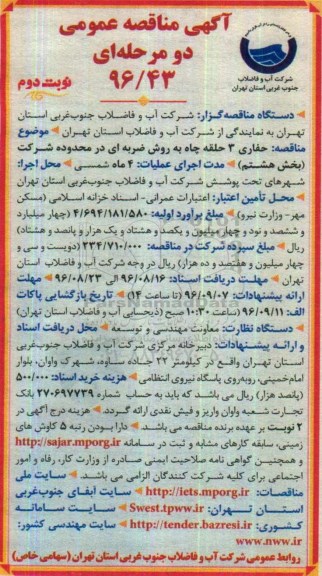 آگهی مناقصه عمومی
دو مرحله‌ای
۹۶/۴۳
نوبت دوم
شرکت آب و فاضلاب
جنوب غربی استان تهران
دستگاه مناقصه‌گزار: شرکت آب و فاضلاب جنوب‌غربی استان
تهران به نمایندگی از شرکت آب و فاضلاب استان تهران موضوع
مناقصه: حفاری ۳ حلقه چاه به روش ضربه ای در محدوده شرکت
(بخش هشتم) مدت اجرای عملیات: ۴ ماه شمسی محل اجرا:
شهرهای تحت پوشش شرکت آب و فاضلاب جنوب‌غربی استان تهران
محل تأمین اعتبار: اعتبارات عمرانی- اسناد خزانه اسلامی (مسکن
مهر- وزارت نیرو) مبلغ برآورد اولیه: ۴/۶۹۴/۱۸۱/۵۸۰ (چهار میلیارد
و ششصد و نود و چهار میلیون و یکصد و هشتاد و یک هزار و پانصد و هشتاد)
ریال مبلغ سپرده شرکت در مناقصه: ۲۳۴/۷۱۰/۰۰۰ (دویست و سی و
چهار میلیون و هفتصد و ده هزار) ریال در وجه شرکت آب و فاضلاب استان
تهران مهلت دریافت اسناد: ۹۶/۰۸/۱۶ الی ۹۶/۰۸/۲۳ مهلت
ارائه پیشنهادات: ۹۶/۰۹/۰۷ (تا ساعت ۱۴) تاریخ بازگشایی پاکات
الف: ۹۶/۰۹/۱۱ (ساعت ۱۰:۳۰ صبح (ذیحسابی آب و فاضلاب استان تهران)
دستگاه نظارت: معاونت مهندسی و توسعه محل دریافت اسناد
و ارائه پیشنهادات: دبیرخانه مرکزی شرکت آب و فاضلاب جنوب‌غربی
استان تهران واقع در کیلومتر ۲۲ جاده ساوه، شهرک واوان، بلوار
امام‌خمینی، روبه‌روی پاسگاه نیروی انتظامی هزینه خرید اسناد: ۵۰۰/۰۰۰
(پانصد هزار) ریال می باشد که باید به حساب شماره ۲۷۰۶۹۷۷۳۹ بانک
تجارت شعبه واوان واریز و فیش نقدی ارائه گردد. هزینه درج آگهی در
۲ نوبت بر عهده برنده مناقصه می باشد. دارا بودن رتبه ۵ کاوش های
زمینی، سابقه کارهای مشابه و ثبت در سامانه http://sajar.mporg.ir
و همچنین گواهی نامه صلاحیت ایمنی صادره از وزارت کار، رفاه و امور
اجتماعی برای کلیه شرکت کنندگان الزامی می باشد. سایت ملی
مناقصات: http://iets.mporg.ir سایت آبفای جنوب‌غربی
استان تهران: Swest.tpww.ir سایت سامانه
کشوری: http://tender.bazresi.ir سایت مهندسی کشور:
www.nww.ir
روابط عمومی شرکت آب و فاضلاب جنوب غربی استان تهران (سهامی خاص)